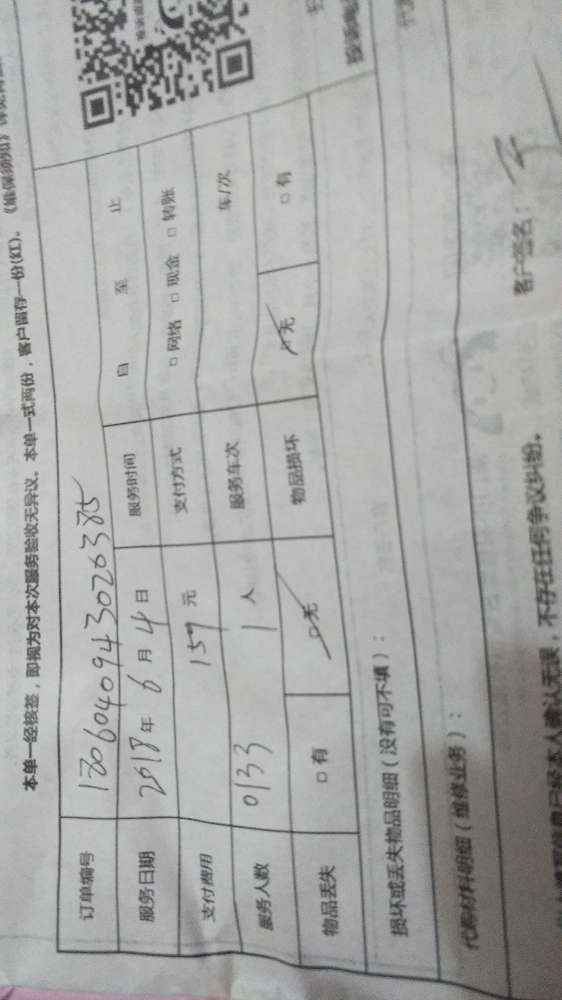 本单一经核签，即视为对本次服务验收无异议。本单一式两份，客户留存一份(红)。
订单编号 180604094302638​5
服务日期 2018年6月4日 服务时间 自 至 止
支付费用 157元 支付方式 □网络 □现金 □转账
服务人数 0133 1人 服务车次 车/次
物品丢失 □有 □无 物品损坏 □无 □有
损坏或丢失物品明细（没有可不填）：
代表材料明细（维修业务）：
确认无误，不存在任何争议纠纷。
客户签名：